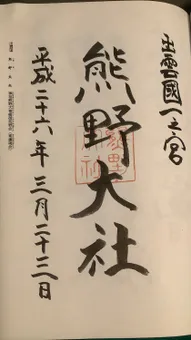 出雲國一之宮
熊野大社
平成二十六年三月二十二日